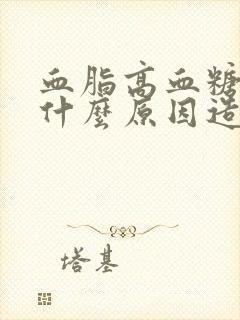 血脂高血糖
什麼原因造
塔基